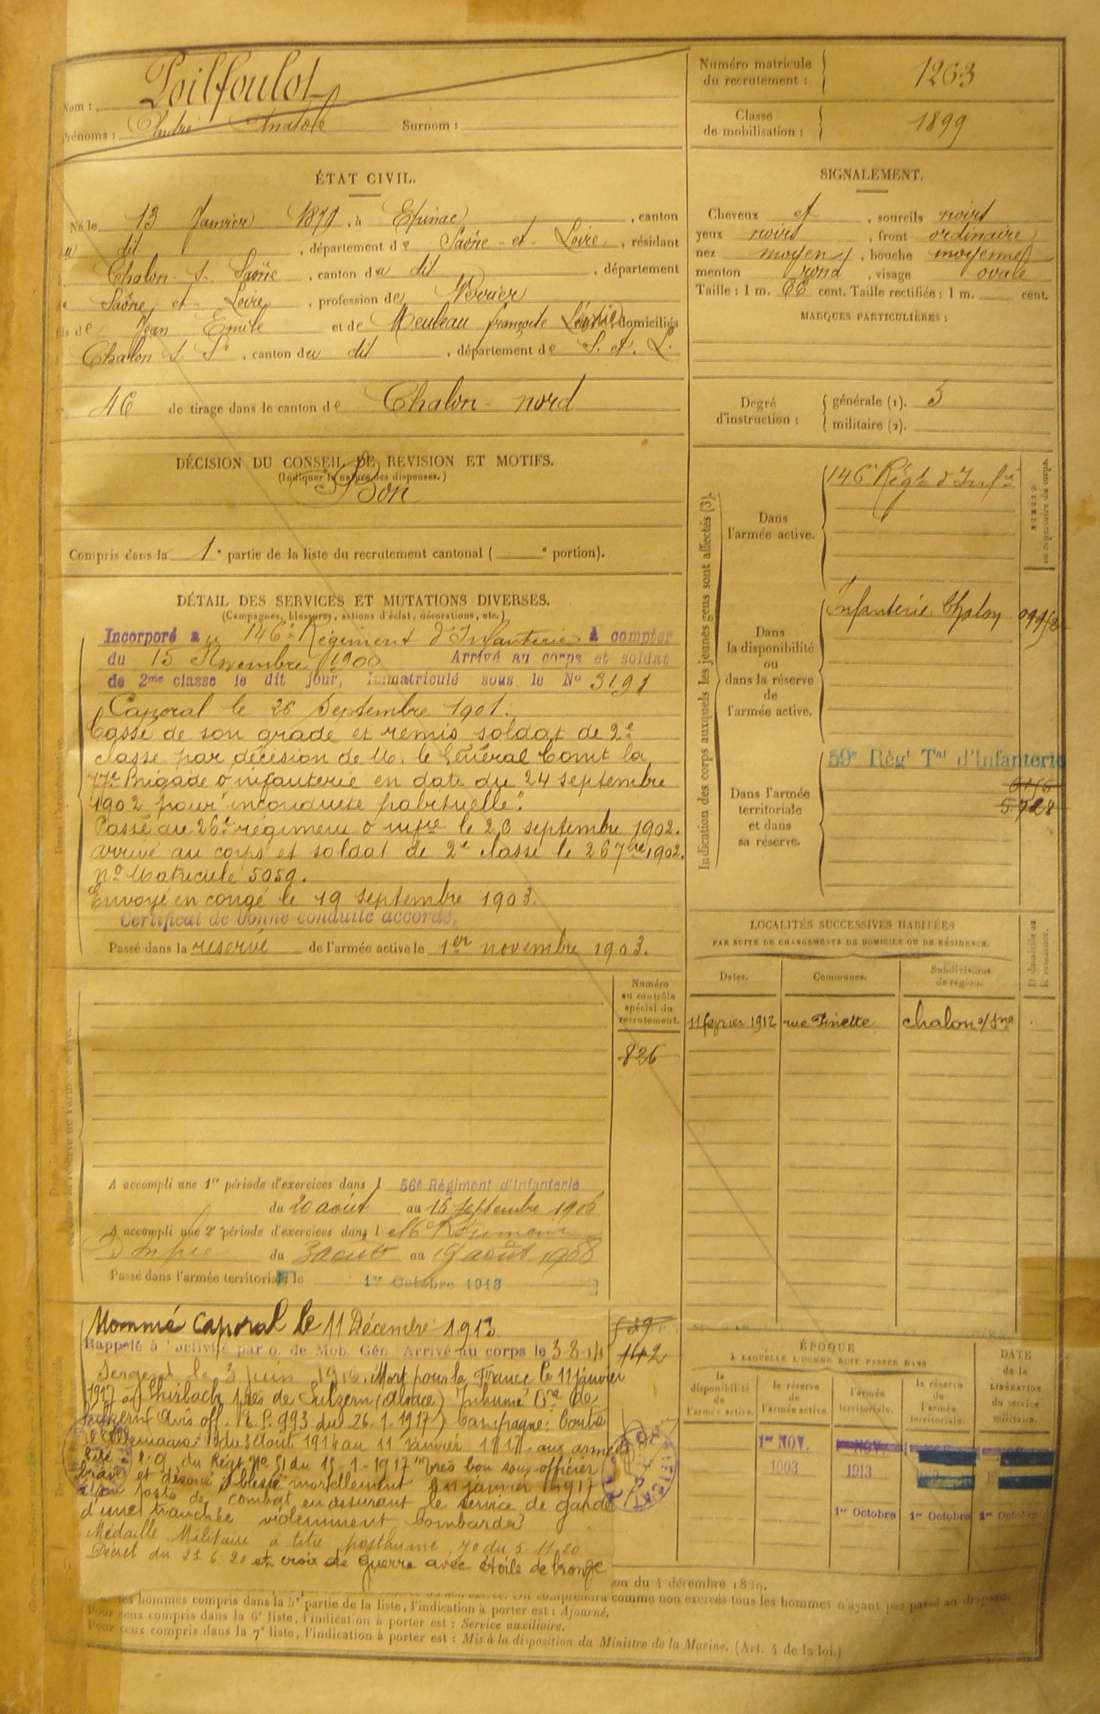 Nom : Poilfoulot
Prénoms : André Anatole Surnom :
Numéro matricule du recrutement : 1263
Classe de mobilisation : 1899
ÉTAT CIVIL.
Né le 13 Janvier 1879, à Epinac, canton
dit, département de Saône-et-Loire, résidant
Chalon-s-Saône, canton du dit, département
Saône-et-Loire, profession de Verrier
fils de Jean Emile et de Meuleau françoise domiciliés
Chalon s. S., canton du dit, département de S. et. L.
46 de tirage dans le canton de Chalon-nord
SIGNALEMENT.
Cheveux et, sourcils noirs
yeux noirs, front ordinaire
nez moyen, bouche moyenne
menton rond, visage ovale
Taille : 1 m. 66 cent. Taille rectifiée : 1 m. cent.
MARQUES PARTICULIÈRES :
Degré d'instruction : générale (1). 3
militaire (2).
DÉCISION DU CONSEIL DE REVISION ET MOTIFS.
(Indiquer la nature des dispenses.)
Bon
Compris dans la 1e partie de la liste du recrutement cantonal ( e portion).
DÉTAIL DES SERVICES ET MUTATIONS DIVERSES.
(Campagnes, blessures, actions d'éclat, décorations, etc.)
Incorporé au 146e Régiment d'Infanterie à compter
du 15 Novembre 1900 Arrivé au corps et soldat
de 2me classe le dit jour, Immatriculé sous le No 3191
Caporal le 26 Septembre 1901.
Cassé de son grade et remis soldat de 2e
classe par décision de M. le Général Comt la
77e Brigade d'infanterie en date du 24 septembre
1902 pour "inconduite habituelle".
Passé au 26e régiment d'infrie le 26 septembre 1902.
arrivé au corps et soldat de 2e classe le 26 7bre 1902.
no Matricule 5059.
Envoyé en congé le 19 septembre 1903.
Certificat de bonne conduite accordé.
Passé dans la réserve de l'armée active le 1er novembre 1903.
Numéro au contrôle spécial du recrutement.
826
A accompli une 1re période d'exercices dans l 56e Régiment d'Infanterie
du 20 août au 16 septembre 1906
A accompli une 2e période d'exercices dans l
du 3 août au 19 août 1908
Passé dans l'armée territoriale le 1er Octobre 1913
Nommé Caporal le 11 Décembre 1913
Rappelé à l'activité par o. de Mob. Gén. Arrivé au corps le 3-8-14
142
Sergent le 3 juin 1916. Mort pour la France le 11 janvier
1917 près de Sulzern (Alsace) Inhumé
(Avis off. 993 du 26.1.1917) Campagne: Contre
l'Allemagne du 3 Août 1914 au 11 janvier 1917 aux armées
du Régt no 51 du 15-1-1917 "très bon sous-officier
brave et dévoué, blessé mortellement 11 janvier 1917
poste de combat en assurant le service de garde
d'une tranchée violemment bombardée"
Médaille Militaire à titre posthume, JO du 5.11.20
Décret du 21.6.20 et croix de Guerre avec étoile de bronze
Indication des corps auxquels les jeunes gens sont affectés (3).
Dans l'armée active.
146e Régt d'Infie
NUMÉRO au répertoire du corps.
Dans la disponibilité ou dans la réserve de l'armée active.
Infanterie Chalon
Dans l'armée territoriale et dans sa réserve.
59e Régt Tal d'Infanterie
LOCALITÉS SUCCESSIVES HABITÉES
PAR SUITE DE CHANGEMENTS DE DOMICILE OU DE RÉSIDENCE.
Dates. Communes. Subdivisions de région.
11 février 1912 rue Pinette chalon s/Sne
ÉPOQUE
À LAQUELLE L'HOMME DOIT PASSER DANS
la disponibilité de l'armée active.
la réserve de l'armée active.
l'armée territoriale.
la réserve de l'armée territoriale.
DATE de la LIBÉRATION du service militaire.
1er NOV. 1903
NOV. 1913
1er Octobre 1er Octobre 1er Octobre
du 4 décembre 1889.
les hommes compris dans la 5e partie de la liste, l'indication à porter est : Ajourné.
Pour ceux compris dans la 6e liste, l'indication à porter est : Service auxiliaire.
Pour ceux compris dans la 7e liste, l'indication à porter est : Mis à la disposition du Ministre de la Marine. (Art. 4 de la loi.)